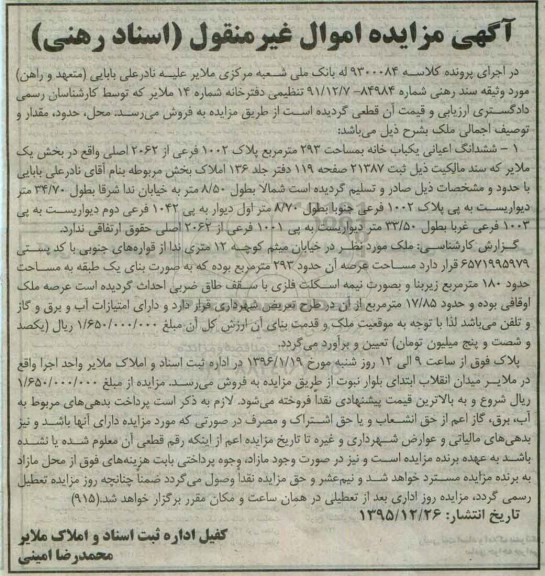 آگهی مزایده اموال غیرمنقول (اسناد رهنی)
در اجرای پرونده کلاسه ۹۳۰۰۰۸۴ له بانک ملی شعبه مرکزی ملایر علیه نادرعلی بابایی (متعهد و راهن)
مورد وثیقه سند رهنی شماره ۸۴۹۸۴- ۹۱/۱۲/۷ تنظیمی دفترخانه شماره ۱۴ ملایر که توسط کارشناسان رسمی
دادگستری ارزیابی و قیمت آن قطعی گردیده است از طریق مزایده به فروش می‌رسد. محل، حدود، مقدار و
توصیف اجمالی ملک بشرح ذیل می‌باشد:
۱ – ششدانگ اعیانی یکباب خانه بمساحت ۲۹۳ مترمربع پلاک ۱۰۰۲ فرعی از ۲۰۶۲ اصلی واقع در بخش یک
ملایر که سند مالکیت ذیل ثبت ۲۱۳۸۷ صفحه ۱۱۹ دفتر جلد ۱۳۶ املاک بخش مربوطه بنام آقای نادرعلی بابایی
با حدود و مشخصات ذیل صادر و تسلیم گردیده است شمالا بطول ۸/۵۰ متر به خیابان ندا شرقا بطول ۳۴/۷۰ متر
دیواریست به پی پلاک ۱۰۰۲ فرعی جنوبا بطول ۸/۷۰ متر اول دیوار به پی ۱۰۴۲ فرعی دوم دیواریست به پی
۱۰۰۳ فرعی غربا بطول ۳۳/۵۰ متر دیواریست به پی ۱۰۰۱ فرعی از ۲۰۶۲ اصلی حقوق ارتفاقی ندارد.
گزارش کارشناسی: ملک مورد نظر در خیابان میثم کوچه ۱۲ متری ندا از قواره‌های جنوبی با کد پستی
۶۵۷۱۹۹۵۹۷۹ قرار دارد مساحت عرصه آن حدود ۲۹۳ مترمربع بوده که به صورت بنای یک طبقه به مساحت
حدود ۱۸۰ مترمربع زیربنا و بصورت نیمه اسکلت فلزی با سقف طاق ضربی احداث گردیده است عرصه ملک
اوقافی بوده و حدود ۱۷/۸۵ مترمربع از آن در طرح تعریض شهرداری قرار دارد و دارای امتیازات آب و برق و گاز
و تلفن می‌باشد لذا با توجه به موقعیت ملک و قدمت بنای آن ارزش کل آن مبلغ ۱/۶۵۰/۰۰۰/۰۰۰ ریال (یکصد
و شصت و پنج میلیون تومان) تعیین و برآورد می‌گردد.
پلاک فوق از ساعت ۹ الی ۱۲ روز شنبه مورخ ۱۳۹۶/۱/۱۹ در اداره ثبت اسناد و املاک ملایر واحد اجرا واقع
در ملایر میدان انقلاب ابتدای بلوار نبوت از طریق مزایده به فروش می‌رسد. مزایده از مبلغ ۱/۶۵۰/۰۰۰/۰۰۰
ریال شروع و به بالاترین قیمت پیشنهادی نقداً فروخته می‌شود. لازم به ذکر است پرداخت بدهی‌های مربوط به
آب، برق، گاز اعم از حق انشعاب و یا حق اشتراک و مصرف در صورتی که مورد مزایده دارای آنها باشد و نیز
بدهی‌های مالیاتی و عوارض شهرداری و غیره تا تاریخ مزایده اعم از اینکه رقم قطعی آن معلوم شده یا نشده
باشد به عهده برنده مزایده است و نیز در صورت وجود مازاد، وجوه پرداختی بابت هزینه‌های فوق از محل مازاد
به برنده مزایده مسترد خواهد شد و نیم‌عشر و حق مزایده نقداً وصول می‌گردد ضمنا چنانچه روز مزایده تعطیل
رسمی گردد، مزایده روز اداری بعد از تعطیلی در همان ساعت و مکان مقرر برگزار خواهد شد.(۹۱۵)
تاریخ انتشار: ۱۳۹۵/۱۲/۲۶
کفیل اداره ثبت اسناد و املاک ملایر
محمدرضا امینی